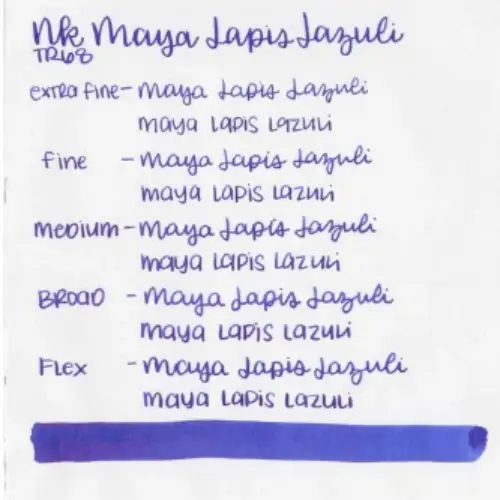 NK Maya Lapis Lazuli
TR68
extra fine - Maya Lapis Lazuli
maya Lapis Lazuli
fine - Maya Lapis Lazuli
maya Lapis Lazuli
medium - Maya Lapis Lazuli
maya Lapis Lazuli
BROAD - Maya Lapis Lazuli
maya Lapis Lazuli
FLex - Maya Lapis Lazuli
maya Lapis Lazuli